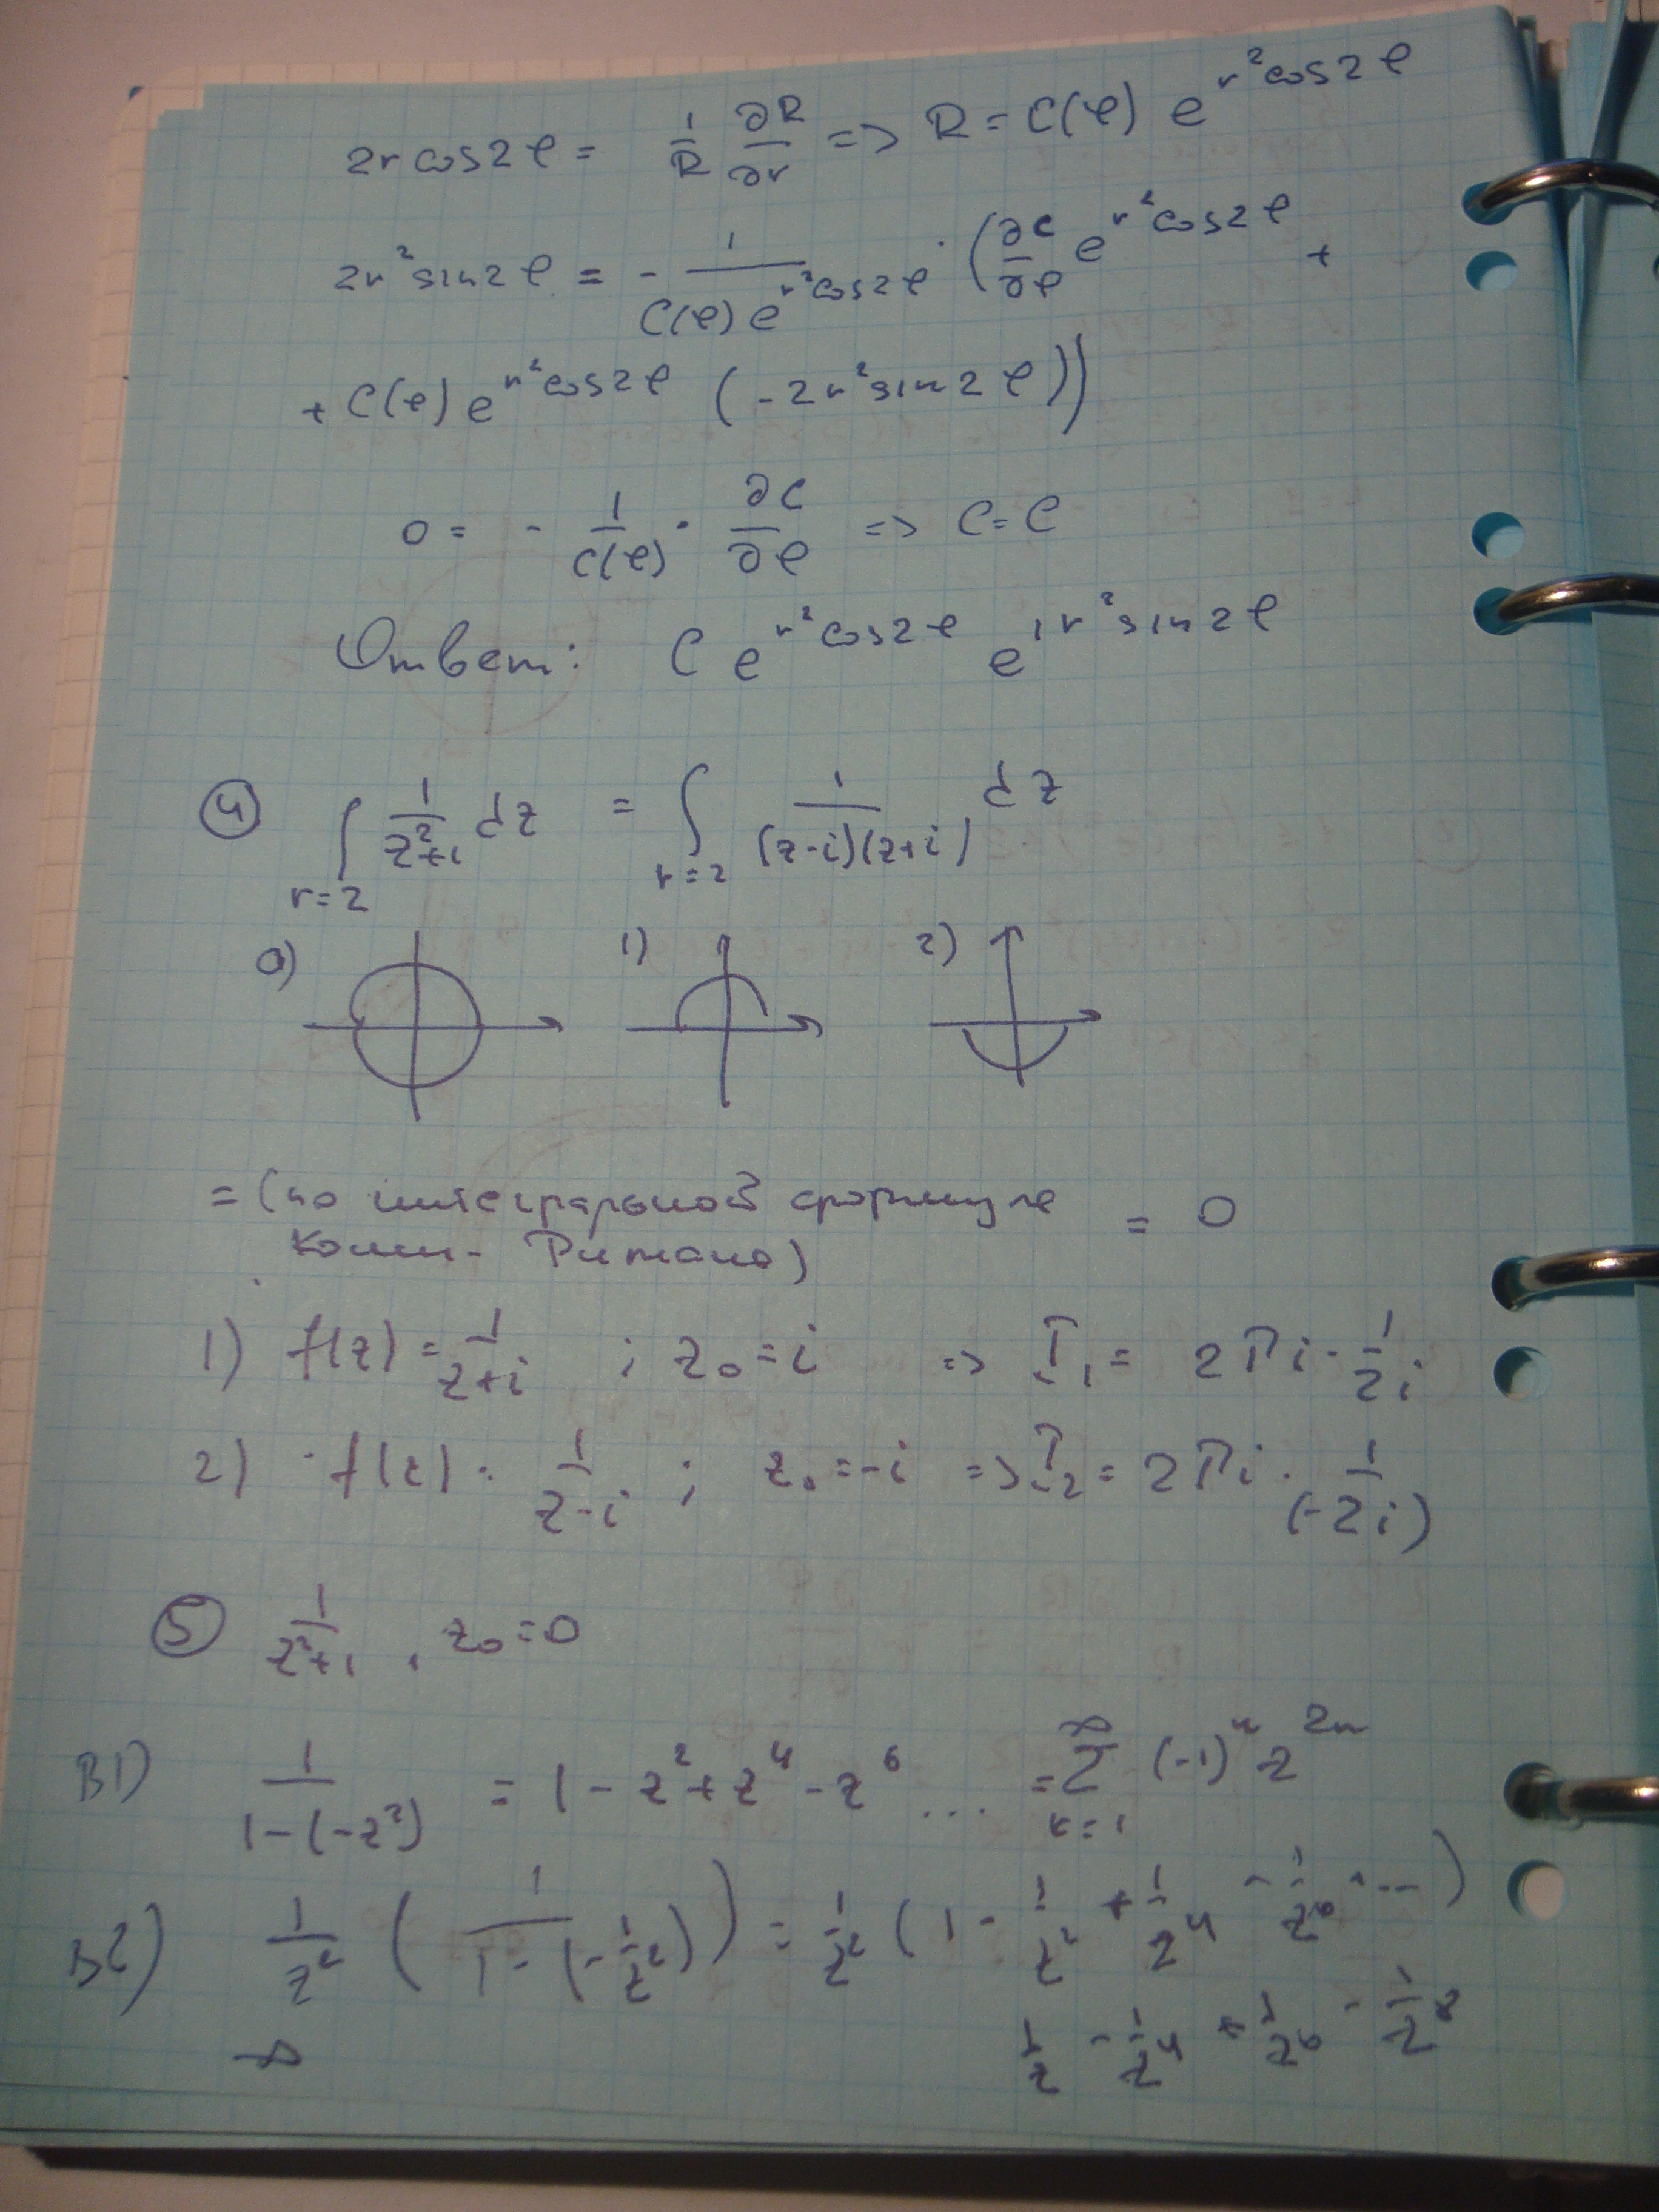 2r cos2φ = 1/R ∂R/∂r => R = C(φ) e^(r² cos2φ)
2r² sin2φ = - 1/(C(φ) e^(r² cos2φ)) · (∂C/∂φ e^(r² cos2φ) +
+ C(φ) e^(r² cos2φ) (-2r² sin2φ))
0 = - 1/C(φ) · ∂C/∂φ => C = C
Ответ: C e^(r² cos2φ) e^(ir² sin2φ)
④ ∫_(r=2) 1/(z²+1) dz = ∫_(r=2) 1/((z-i)(z+i)) dz
0) 1) 2)
= (по интегральной формуле
Коши- Римана) = 0
1) f(z) = 1/(z+i) ; z₀ = i => I₁ = 2πi · 1/2i
2) f(z) = 1/(z-i) ; z₀ = -i => I₂ = 2πi · 1/(-2i)
⑤ 1/(z²+1) , z₀ = 0
В1) 1/(1-(-z²)) = 1 - z² + z⁴ - z⁶ ... = ∑_(k=1)^∞ (-1)ⁿ z^(2n)
В2) 1/z² (1/(1-(-1/z²))) = 1/z² (1 - 1/z² + 1/z⁴ - 1/z⁶ + ...)
∞ 1/z - 1/z⁴ + 1/z⁶ - 1/z⁸